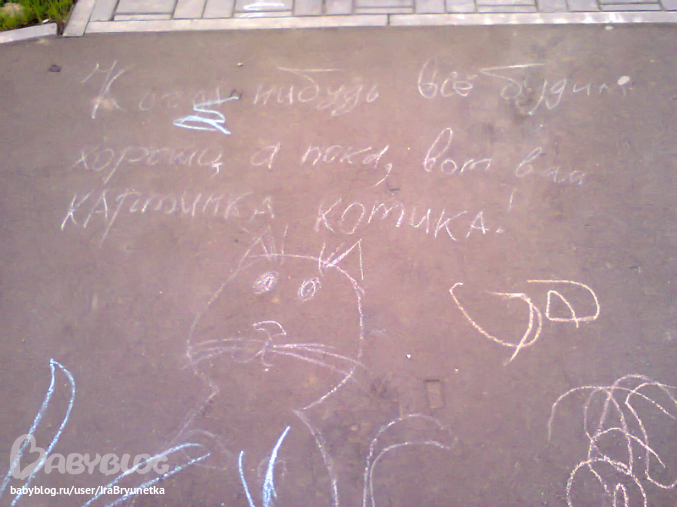 Когда нибудь всё будит
хорошо, а пока, вот вам
картинка котика!
BABYBLOG
babyblog.ru/user/IraBryunetka